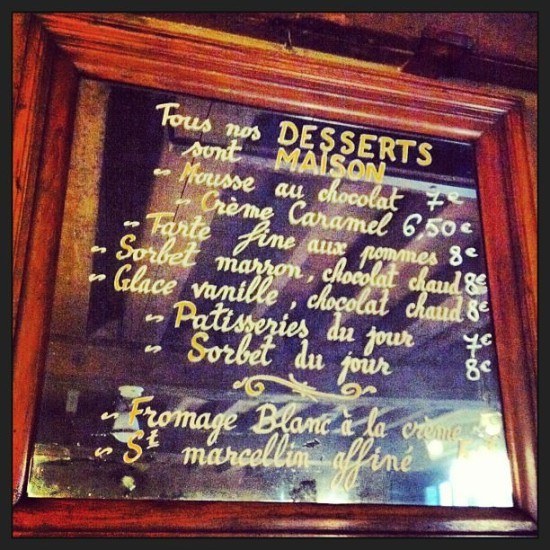 Tous nos DESSERTS
sont MAISON
~ Mousse au chocolat 7€
~ Crème Caramel 6,50€
~ Tarte fine aux pommes 8€
~ Sorbet marron, chocolat chaud 8€
~ Glace vanille, chocolat chaud 8€
~ Patisseries du jour 7€
~ Sorbet du jour 8€
~ Fromage Blanc à la crème
~ St marcellin affiné